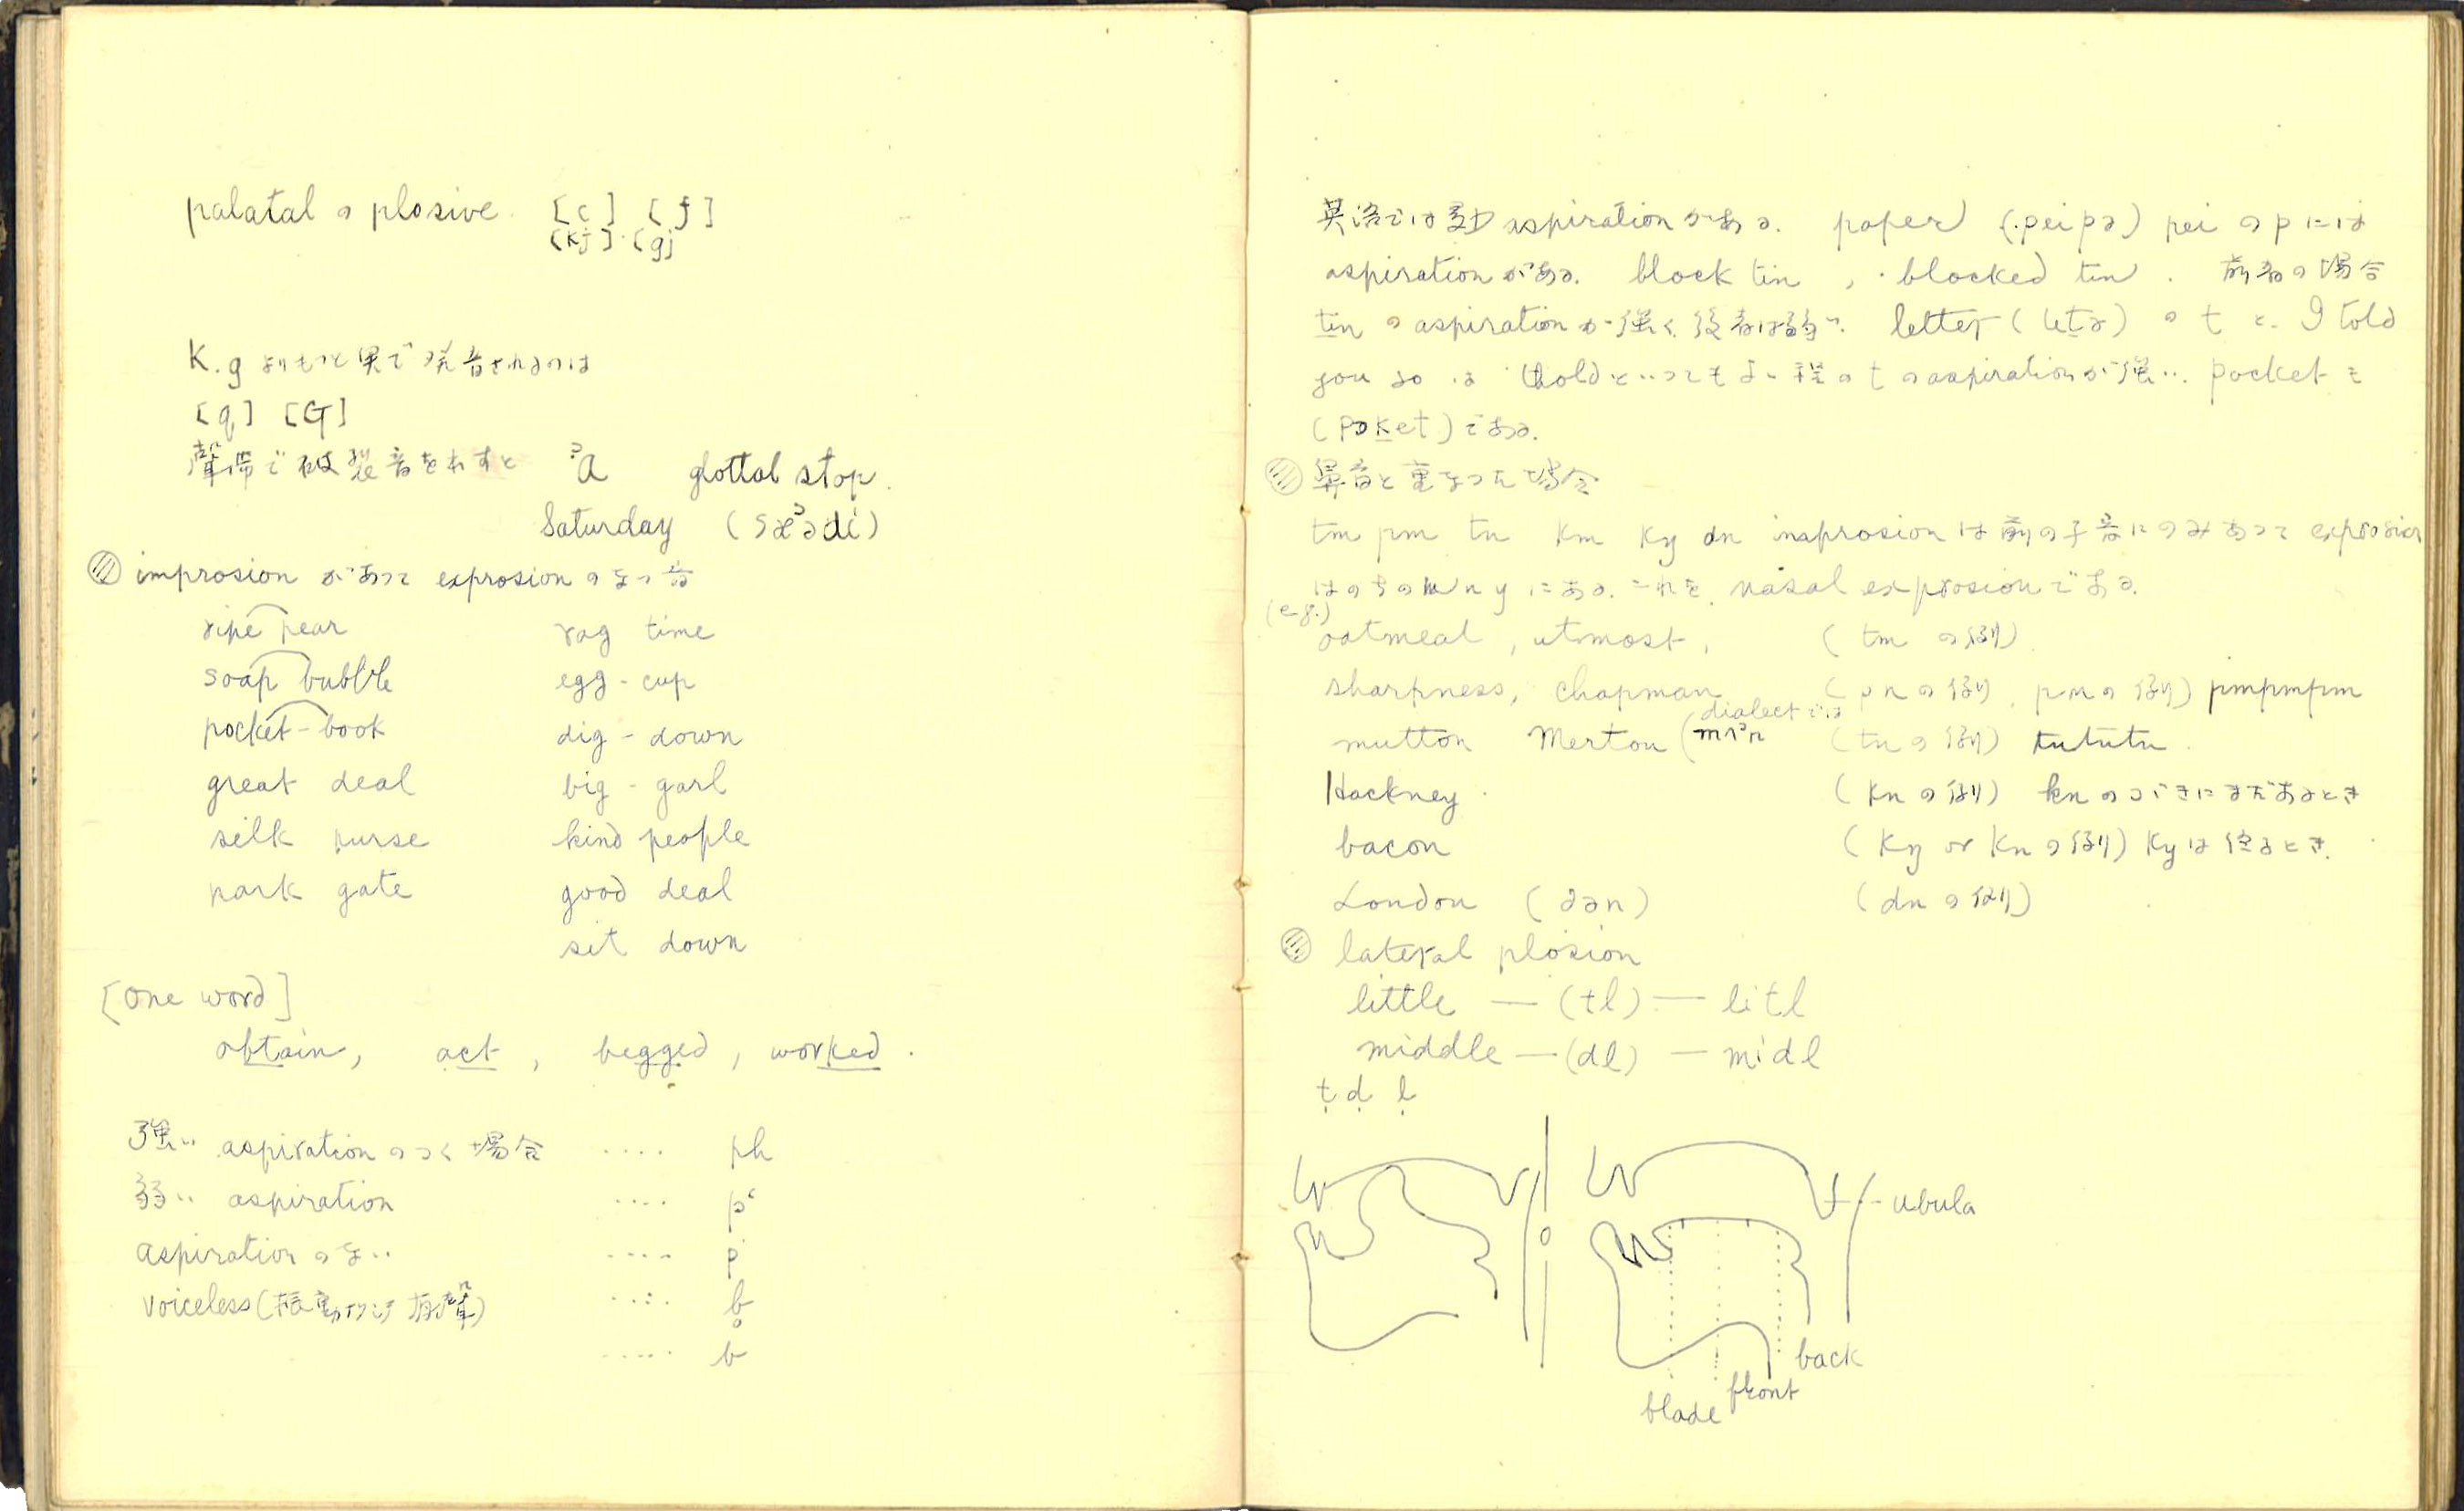 palatal の plosive [c] [ɟ]
[kj]・[gj]
K.g よりもっと奥で発音されるのは
[q] [G]
聲帯で破裂音を出すと ʔa glottal stop.
Saturday (sæʔədi)
improsion があって exprosion のない音
ripe pear rag time
soap bubble egg-cup
pocket-book dig-down
great deal big-garl
silk purse kind people
park gate good deal
sit down
[one word]
obtain, act, begged, worked.
強い aspiration のつく場合 .... ph
弱い aspiration .... p‘
aspiration のない .... p
voiceless (振動 有聲) ..... b̥
..... b
英語では aspiration がある. paper (peipə) pei の p には
aspiration がある. block tin, blocked tin. 前者の場合
tin の aspiration が強く後者は弱い. letter (letə) の t と. I told
you so は thold といってもよい程の t の aspiration が強い. pocket も
(poket) である.
鼻音と重なった場合
tm pm tn km kŋ dn improsion は前の子音にのみあって exprosion
はのちの m n ŋ にある. これを. nasal exprosion である.
(e.g.)
oatmeal, utmost, (tm の例)
sharpness, chapman (pn の例, pm の例) pmpmpm
mutton Merton (dialect では mʌʔn (tn の例) tntntn.
Hackney. (kn の例) kn のつぎにまだあるとき
bacon (kŋ or kn の例) kŋ は終るとき.
London (dən) (dn の例)
lateral plosion
little — (tl) — litl
middle — (dl) — midl
ṭ ḍ ḷ
ubula
back
front
blade